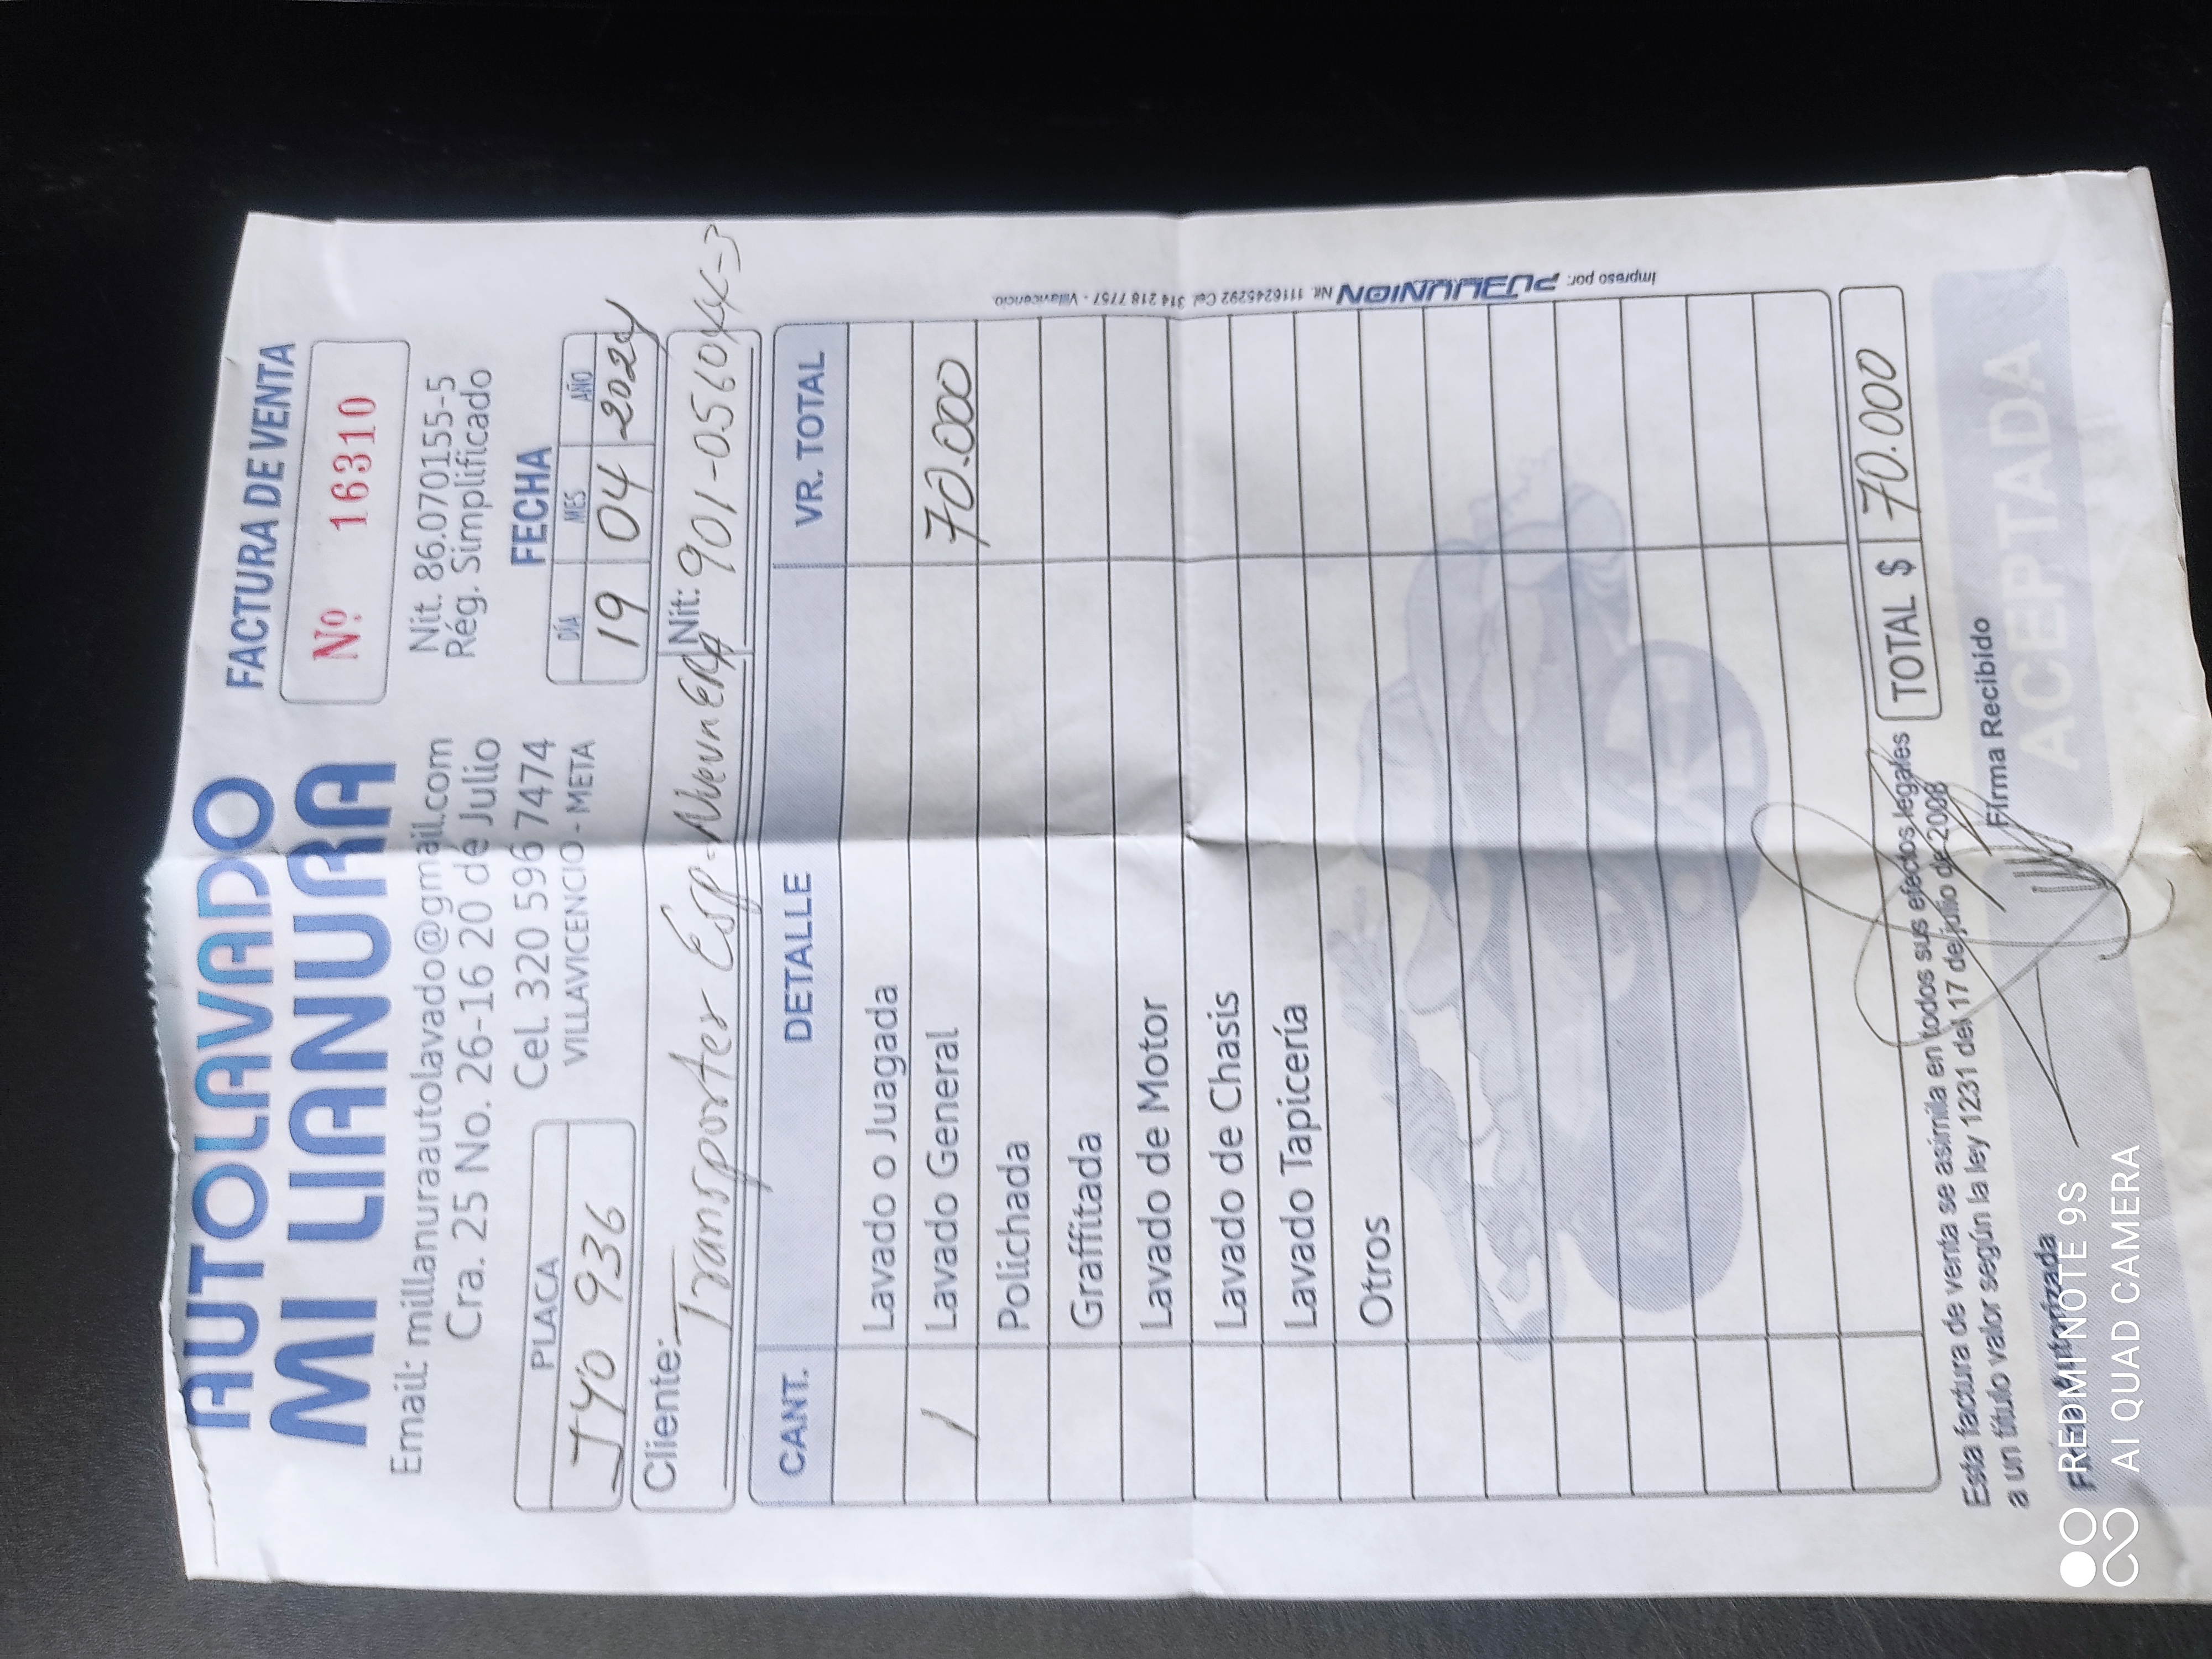 AUTOLAVADO
MI LLANURA
FACTURA DE VENTA
Nº 16310
Email: millanuraautolavado@gmail.com
Cra. 25 No. 26-16 20 de Julio
Cel. 320 596 7474
VILLAVICENCIO - META
Nit. 86.070155-5
Rég. Simplificado
FECHA
DÍA MES AÑO
19 04 2024
PLACA
JYO 936
Cliente: Transportes Esp. Nueva Era Nit: 901-056044-3
CANT. DETALLE VR. TOTAL
Lavado o Juagada
1 Lavado General 70.000
Polichada
Graffitada
Lavado de Motor
Lavado de Chasis
Lavado Tapicería
Otros
Esta factura de venta se asimila en todos sus efectos legales
a un título valor según la ley 1231 del 17 de julio de 2008
TOTAL $ 70.000
Firma Autorizada
Firma Recibido
ACEPTADA
Impreso por: PUBLIUNION Nit. 1116245292 Cel. 314 218 7757 - Villavicencio
REDMI NOTE 9S
AI QUAD CAMERA